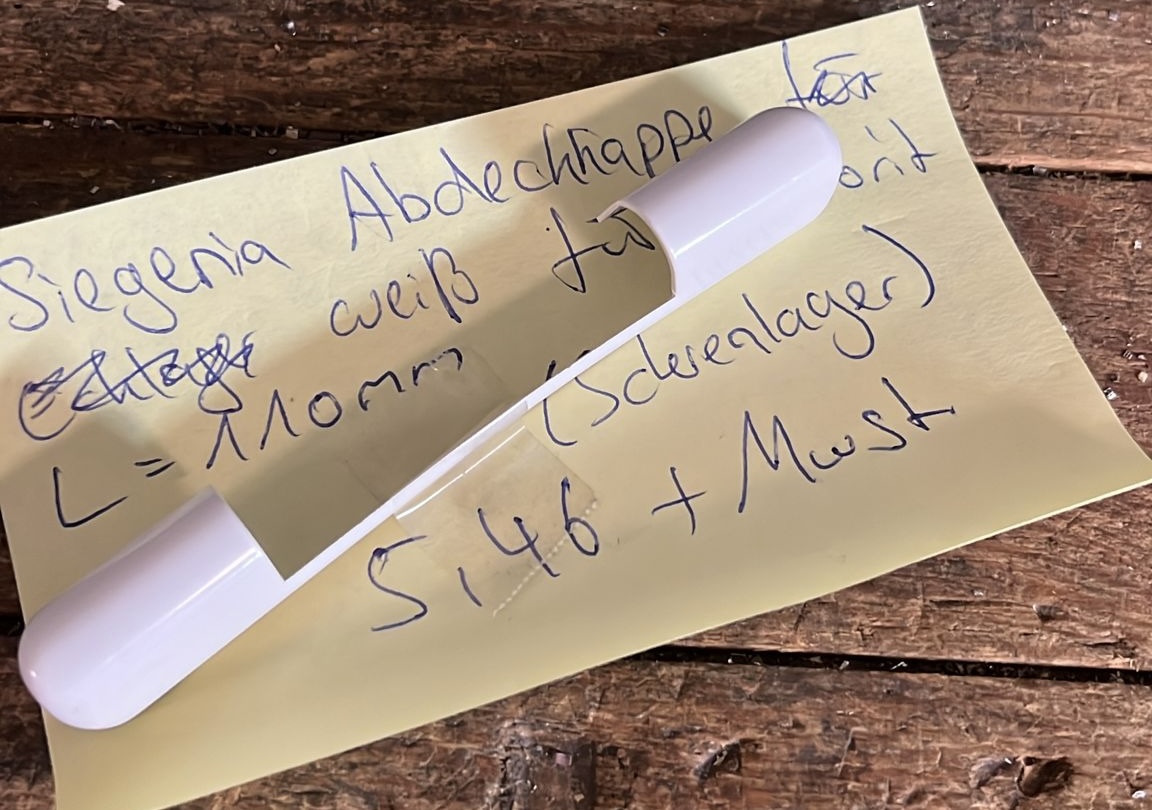 Siegenia Abdeckkappe
weiß für
L = 110mm (Scherenlager)
5,46 + Mwst